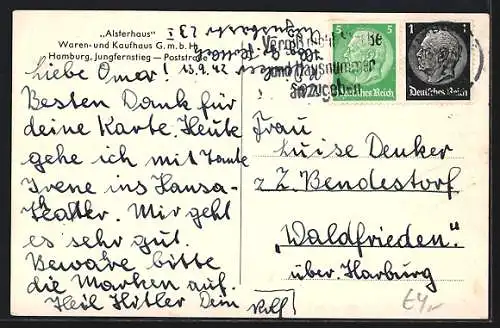 „Alsterhaus“
Waren- und Kaufhaus G. m. b. H.
Hamburg, Jungfernstieg — Poststraße
Liebe Omer! 13.9.42
Besten Dank für
deine Karte. Heute
gehe ich mit Tante
Irene ins Hansa-
Theater. Mir geht
es sehr gut.
Bewahre bitte
die Marken auf.
Heil Hitler Dein
Rolf
5 5
Deutsches Reich
1
Deutsches Reich
und Hausnummer
anzugeben
Frau
Luise Denker
z. Z. Bendestorf
„Waldfrieden“
über Harburg
£4,-